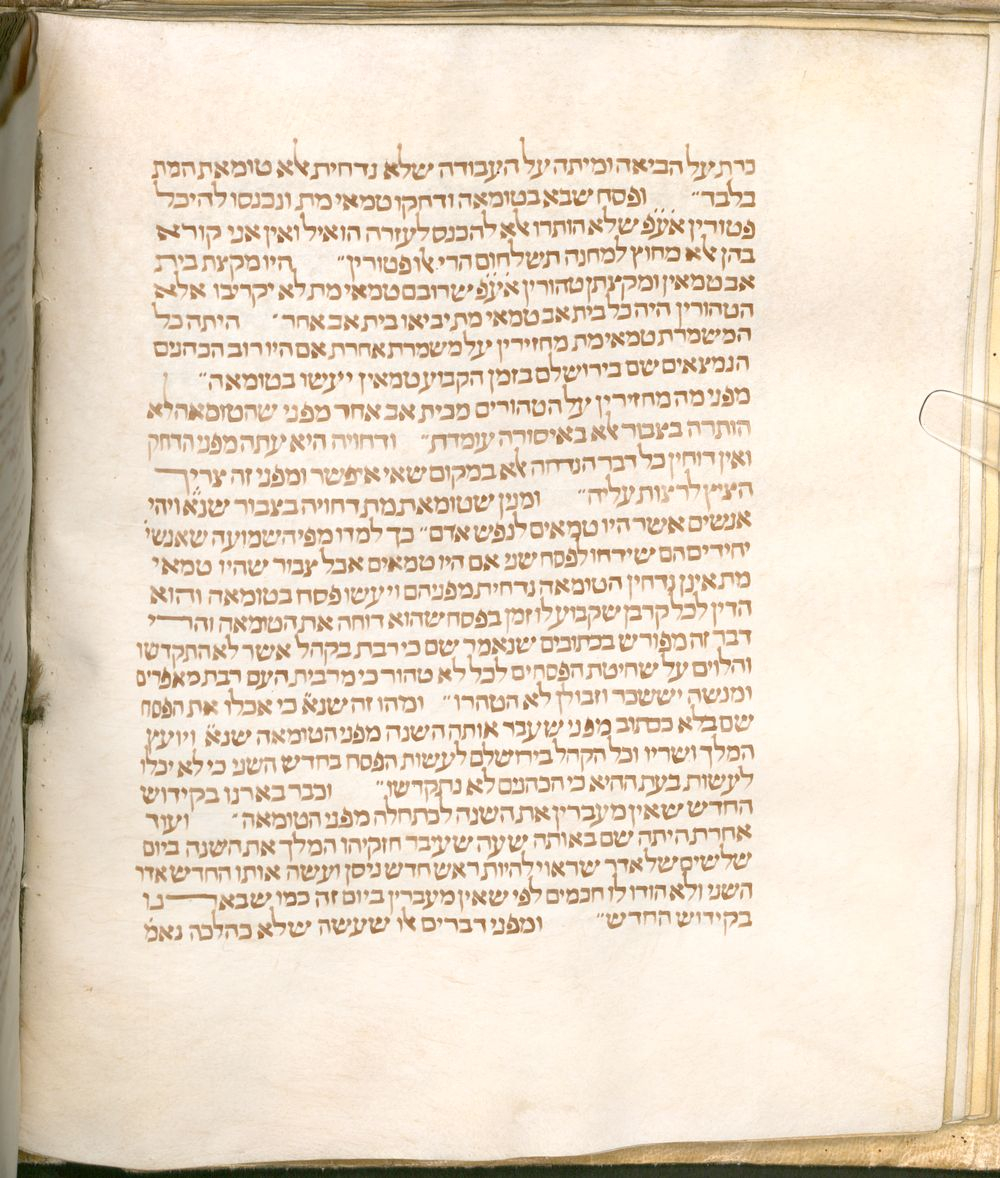 כרת על הביאה ומיתה על העבודה שלא נדחית אלא טומאת המת
בלבד״ ופסח שבא בטומאה ודחקו טמאי מת ונכנסו להיכל
פטורין אעפ שלא הותרו אלא להכנס לעזרה הואיל ואין אני קורא
בהן אלא מחוץ למחנה תשלחום הרי אלו פטורין״ היו מקצת בית
אב טמאין ומקצתן טהורין אעפ שרובם טמאי מת לא יקריבו אלא
הטהורין היה כל בית אב טמאי מת יביאו בית אב אחר׳ היתה כל
המשמרת טמאי מת מחזירין על משמרת אחרת אם היו רוב הכהנים
הנמצאים שם בירושלם בזמן הקבוע טמאין יעשו בטומאה״
מפני מה מחזירין על הטהורים מבית אב אחר מפני שהטומאה לא
הותרה בצבור אלא באיסורה עומדת״ ודחויה היא עתה מפני הדחק
ואין דוחין כל דבר הנדחה אלא במקום שאי איפשר ומפני זה צריך
הציץ לרצות עליה״ ומנין שטומאת מת דחויה בצבור שנא ויהי
אנשים אשר היו טמאים לנפש אדם״ כך למדו מפי השמועה שאנשי׳
יחידים הם שידחו לפסח שני אם היו טמאים אבל צבור שהיו טמאי
מת אינן נדחין הטומאה נדחית מפניהם ויעשו פסח בטומאה והוא
הדין לכל קרבן שקבוע לו זמן בפסח שהוא דוחה את הטומאה והרי
דבר זה מפורש בכתובים שנאמר שם כי רבת בקהל אשר לא התקדשו
והלוים על שחיטת הפסחים לכל לא טהור כי מרבית העם רבת מאפרים
ומנשה יששכר וזבולון לא הטהרו״ ומהו זה שנא כי אכלו את הפסח
שם בלא ככתוב מפני שעבר אותה השנה מפני הטומאה שנא ויועץ
המלך ושריו וכל הקהל בירושלם לעשות הפסח בחדש השני כי לא יכלו
לעשות בעת ההיא כי הכהנים לא נתקדשו״ וכבר בארנו בקידוש
החדש שאין מעברין את השנה לכתחלה מפני הטומאה״ ועוד
אחרת היתה שם באותה שעה שעיבר חזקיהו המלך את השנה ביום
שלשים של אדר שראוי להיות ראש חדש ניסן ועשה אותו החדש אדר
השני ולא הודו לו חכמים לפי שאין מעברין ביום זה כמו שבארנו
בקידוש החדש״ ומפני דברים אלו שעשה שלא כהלכה נאמ׳